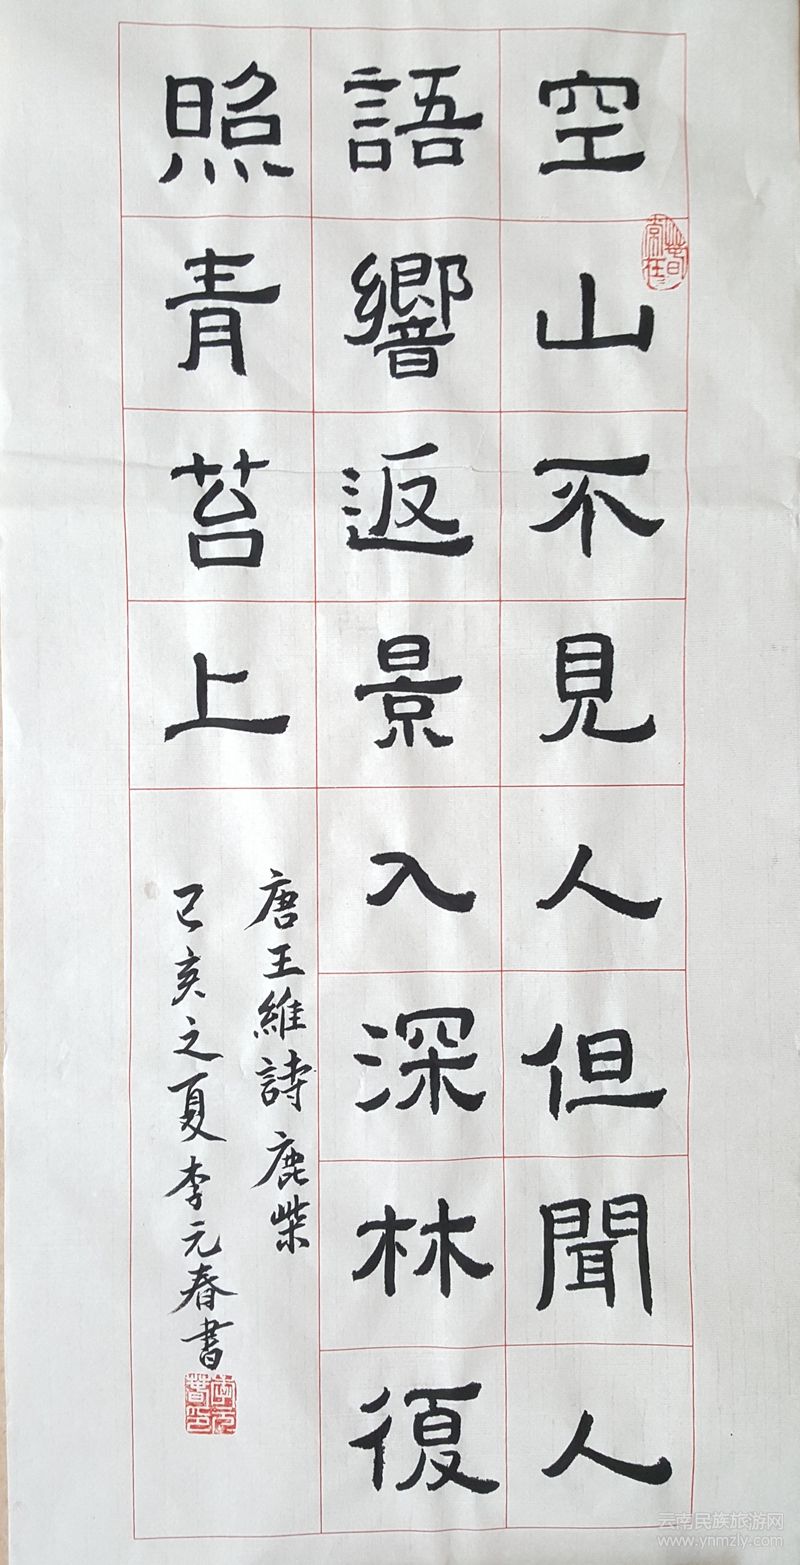 空山不見人但聞人
語響返景入深林復
照青苔上
唐王維詩鹿柴
己亥之夏李元春書
李元春印
云南民族旅游网
www.ynmzly.com